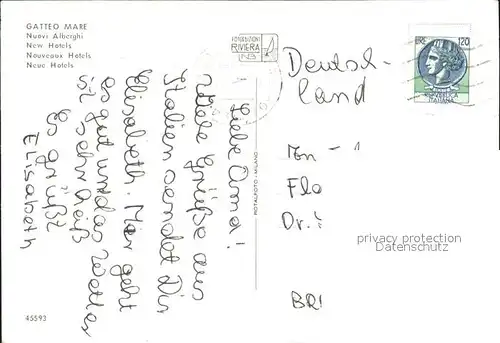 GATTEO MARE
Nuovi Alberghi
New Hotels
Nouveaux Hotels
Neue Hotels
FOTOEDIZIONI
RIVIERA
LIRE 120
REPUBBLICA
ITALIANA
Deutsch-
land
Liebe Oma!
Viele Grüße aus
Italien sendet Dir
Elisabeth. Mir geht
es gut und das Wetter
ist sehr heiß
Es grüßt
Elisabeth
ROTALFOTO - MILANO
Flo
Dr.
privacy protection
Datenschutz
BRI
45593